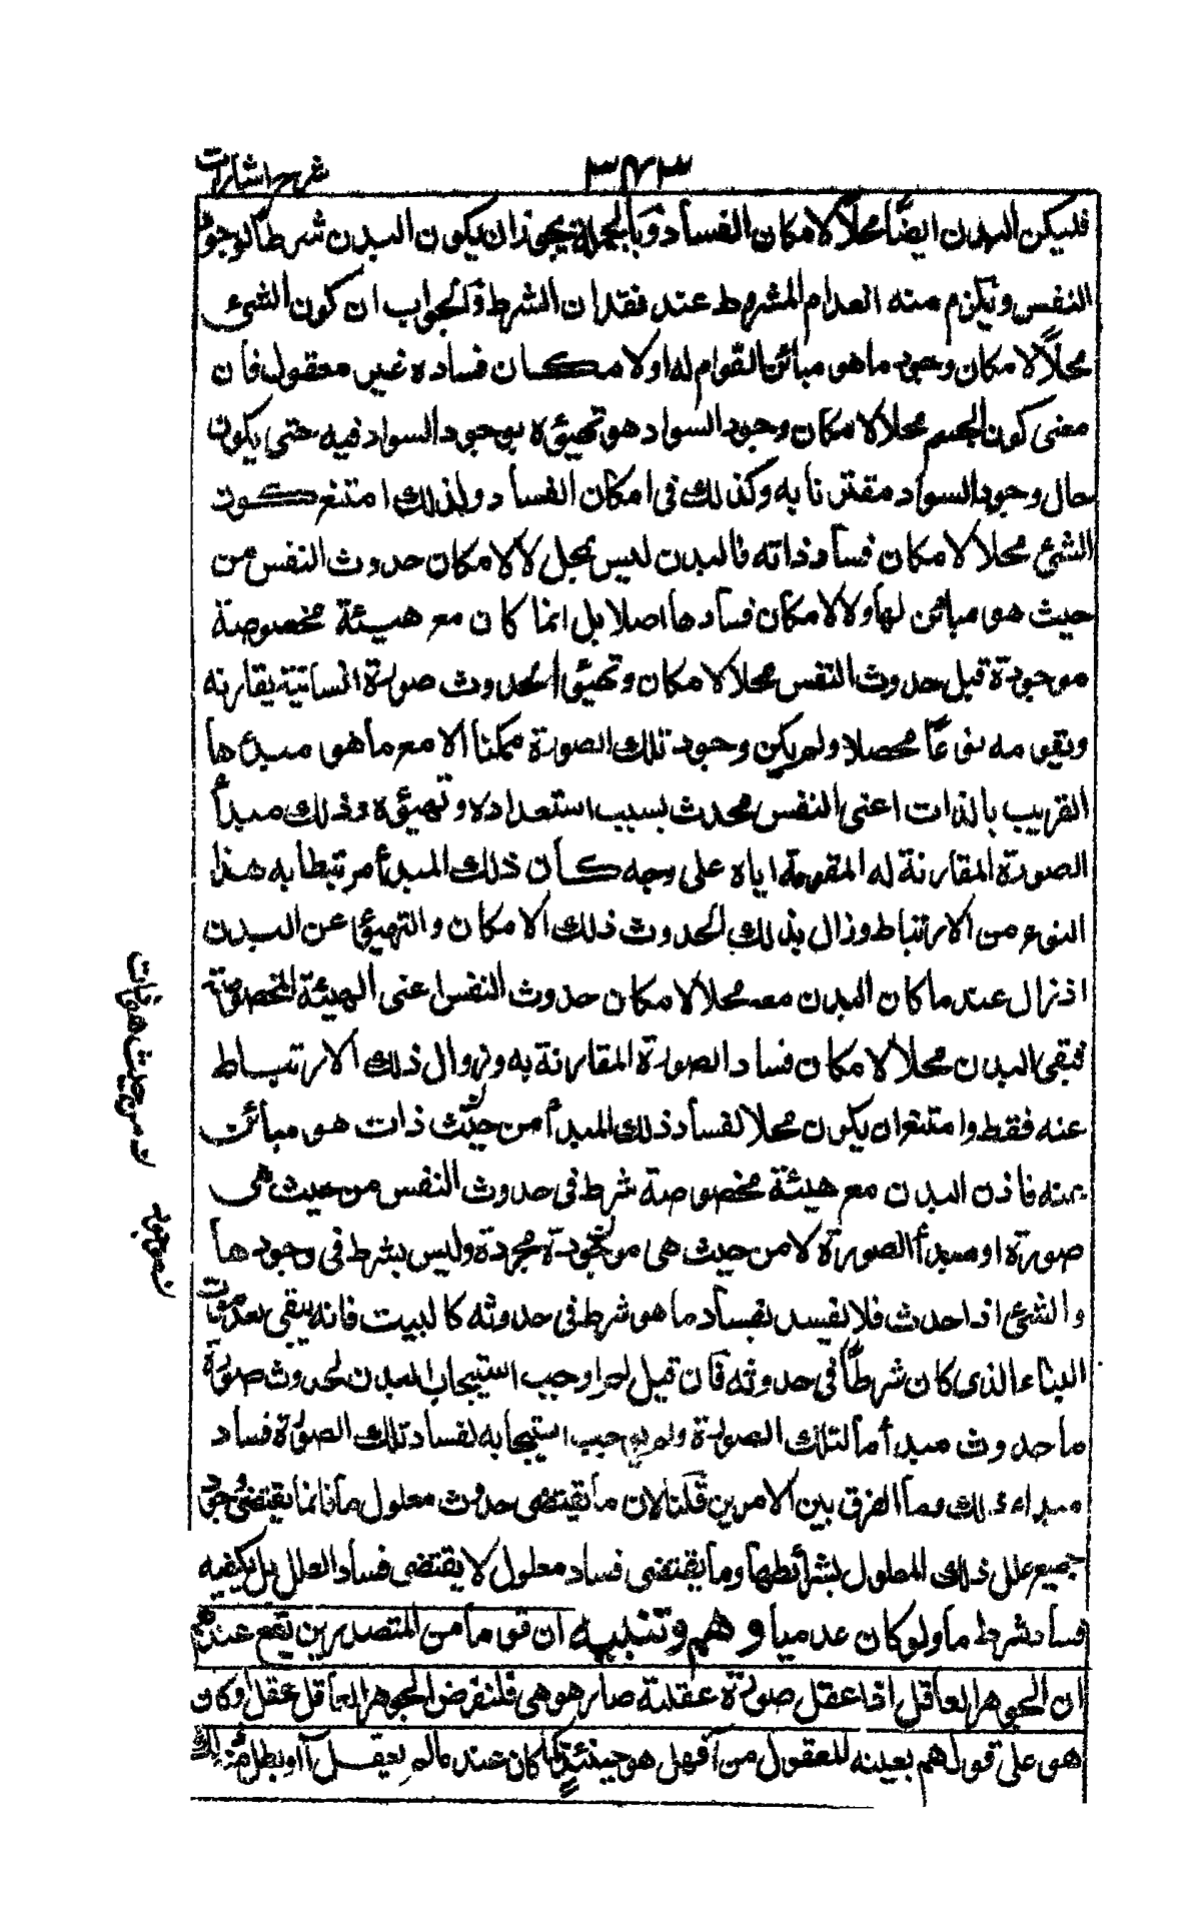 شرح اشارات
٣٤٣
فليكن البدن ايضًا محلًا لامكان الفساد و بالجملة يجوز ان يكون البدن شرطًا لوجود
النفس ويلزم منه انعدام المشروط عند فقدان الشرط والجواب ان كون الشيء
محلًا لامكان وجود ما هو مبائن القوام له او لامكان فساده غير معقول فان
معنى كون الجسم محلا لامكان وجود السواد هو تهيؤه بوجود السواد فيه حتى يكون
حال وجود السواد مقترنا به وكذلك فى امكان الفساد ولذلك امتنع كون
الشئ محلا لامكان فساد ذاته فالبدن ليس بمحل لامكان حدوث النفس من
حيث هى مبائن لها ولا لامكان فسادها اصلا بل انما كان مع هيئة مخصوصة
موجودة قبل حدوث النفس محلا لامكان وتهيؤ لحدوث صورة انسانية يقارنه
ويقومه نوعًا محصلا ولم يكن وجود تلك الصورة ممكنا الا مع ما هو مبدءها
القريب بالذات اعنى النفس محدث بسبب استعداده وتهيؤه ذلك مبدأ
الصورة المقارنة له المقومة اياه على وجه كان ذلك المبدأ مرتبطا به هذا
النوع من الارتباط وزال بذلك الحدوث ذلك الامكان والتهيؤ عن البدن
اذ زال عند ما كان البدن معه محلا لامكان حدوث النفس اعنى الهيئة المخصوصة
فبقى البدن محلا لامكان فساد الصورة المقارنة به وزوال ذلك الارتباط
عنه فقط وامتنع ان يكون محلا لفساد ذلك المبدأ من حيث ذات هو مبائن
عنه فاذن البدن مع هيئة مخصوصة شرط فى حدوث النفس من حيث هى
صورة او مبدأ الصورة لا من حيث هى موجودة مجردة وليس بشرط فى وجودها
والشئ اذا حدث فلا يفسد بفساد ما هو شرط فى حدوثه كالبيت فانه يبقى بعد موت
البناء الذى كان شرطًا فى حدوثه فان قيل لم اوجب استيجاب البدن لحدوث صورة
ما حدوث مبدأ ما لتلك الصورة ولم يوجب استيجابه لفساد تلك الصورة فساد
مبداء ذلك وما الفرق بين الامرين قلنا لان ما يقتضى حدوث معلول ما فانما يقتضى وجود
جميع علل ذلك المعلول بشرائطها وما يقتضى فساد معلول لا يقتضى فساد العلل بل يكفيه
فساد شرط ما ولو كان عدميا وهم وتنبيه ان قوما من المتصدرين يقع عندهم
ان الجوهر العاقل اذا عقل صورة عقلية صار هو هى فلنفرض الجوهر العاقل عقل وكان
هو على قولهم بعينه للعقول من آ فهل هو حينئذ كما كان عند ما لم يعقل آ او بطل منه ذلك
ت من حيث هو ذات